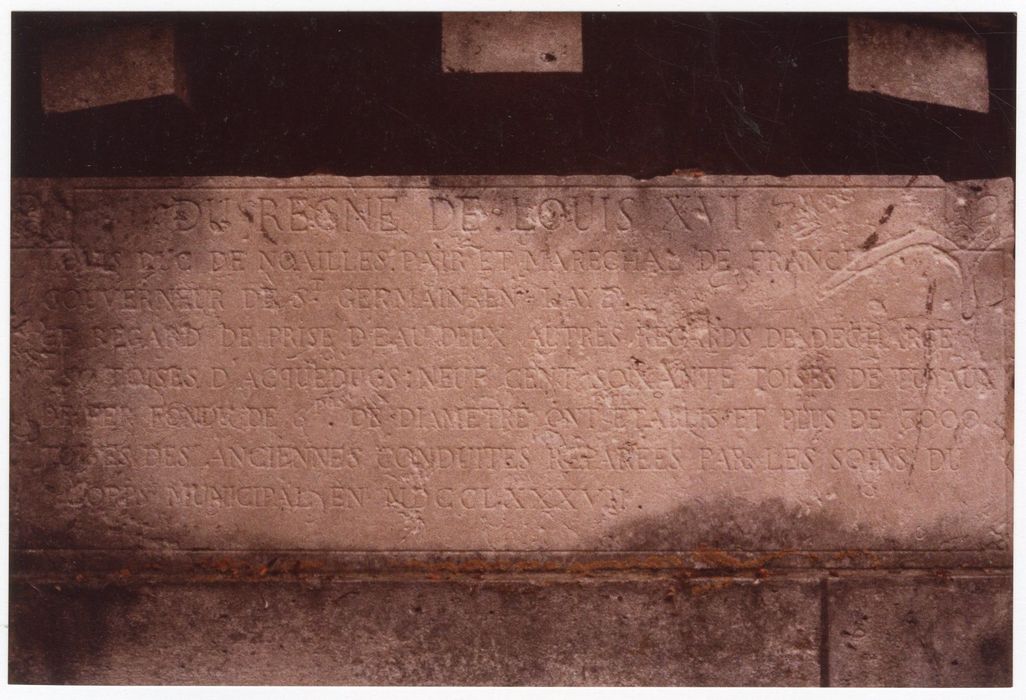 DU REGNE DE LOUIS XVI
LOUIS DUC DE NOAILLES, PAIR ET MARECHAL DE FRANCE
GOUVERNEUR DE St GERMAIN EN LAYE
CE REGARD DE PRISE D'EAU DEUX AUTRES REGARDS DE DECHARGE
TOISES D'ACQUEDUCS: NEUF CENT SOIXANTE TOISES DE TUYAUX
DE FER FONDU DE 6 DE DIAMETRE ONT ETABLIS ET PLUS DE 3000
TOISES DES ANCIENNES CONDUITES REPAREES PAR LES SOINS DU
CORPS MUNICIPAL EN MDCCLXXXVII